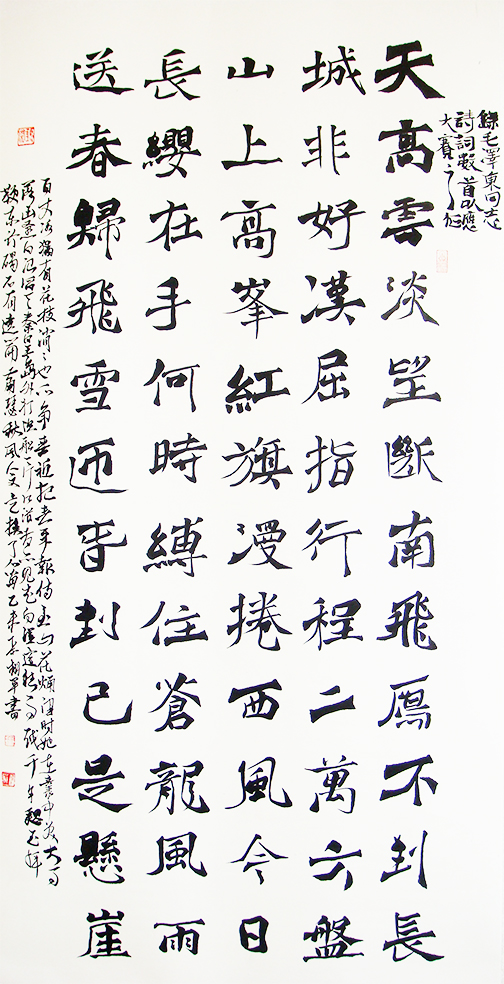 錄毛澤東同志
詩詞數首以應
大賽之征
天高雲淡望斷南飛鴈不到長
城非好漢屈指行程二萬六盤
山上高峯紅旗漫捲西風今日
長纓在手何時縛住蒼龍風雨
送春歸飛雪迎春到已是懸崖
百丈冰猶有花枝俏〻也不爭春祗把春來報待到山花爛漫時她在叢中笑大雨
落幽燕白浪滔天秦皇島外打漁船一片汪洋都不見知向誰邊往事越千年魏武揮
鞭東臨碣石有遺篇蕭瑟秋風今又是換了人間乙未春書